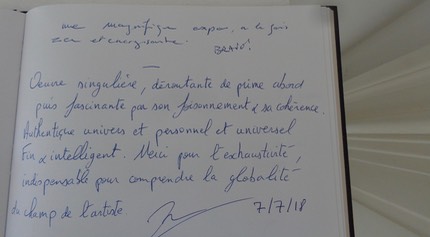 une magnifique expo, à la fois
zen et énergisante.
BRAVO!
Oeuvre singulière, déroutante de prime abord
puis fascinante par son foisonnement & sa cohérence.
Authentique univers et personnel et universel
Fin & intelligent. Merci pour l'exhaustivité,
indispensable pour comprendre la globalité
du champ de l'artiste.
7/7/18